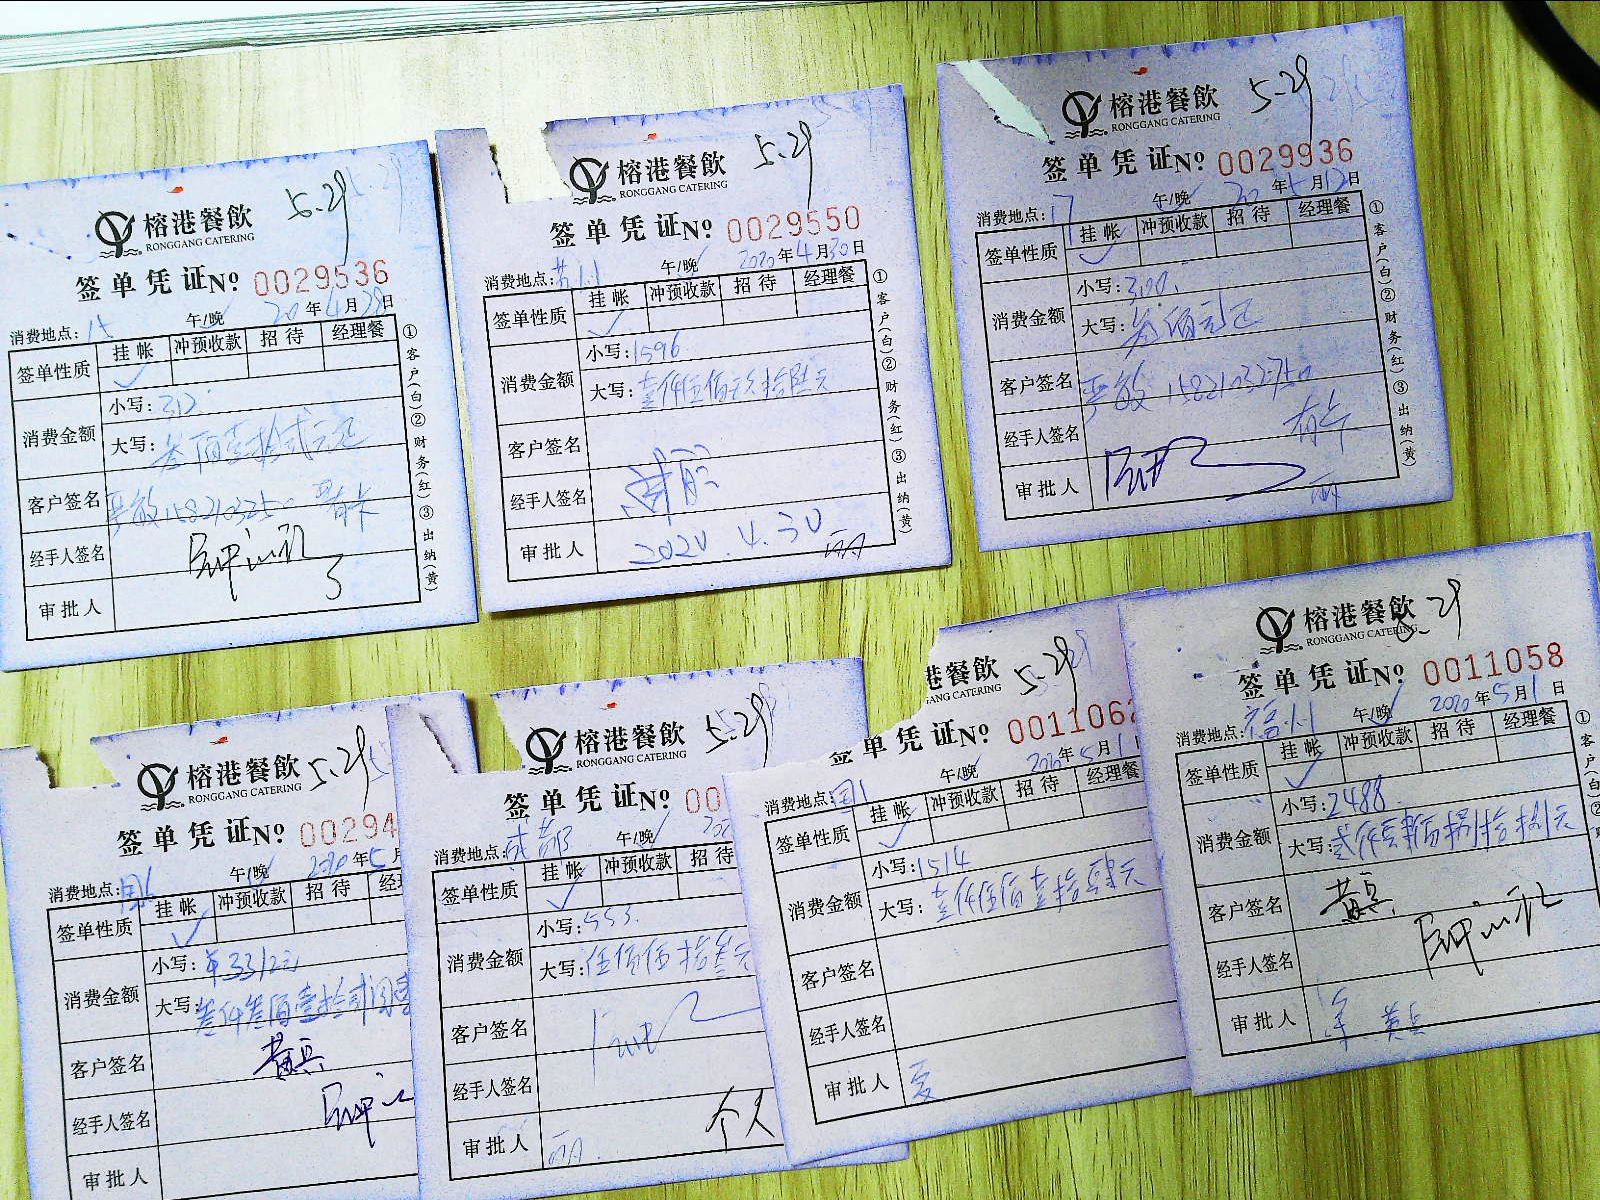 榕港餐飲
5-29
RONGGANG CATERING
签单凭证 № 0029536
20年4月29日
消费地点: 午/晚
签单性质 挂帐 冲预收款 招待 经理餐
消费金额 小写:312
大写:叁佰壹拾贰元正
客户签名
经手人签名
审批人
①客户(白)②财务(红)③出纳(黄)
榕港餐飲
5.29
RONGGANG CATERING
签单凭证 № 0029550
2020年4月30日
消费地点: 午/晚
签单性质 挂帐 冲预收款 招待 经理餐
消费金额 小写:1596
大写:壹仟伍佰玖拾陆元
客户签名
经手人签名
审批人 2020.4.30
①客户(白)②财务(红)③出纳(黄)
榕港餐飲
5-29
RONGGANG CATERING
签单凭证 № 0029936
消费地点:17 午/晚 20年5月12日
签单性质 挂帐 冲预收款 招待 经理餐
消费金额 小写:300.
大写:叁佰元正
客户签名
经手人签名
审批人
①客户(白)②财务(红)③出纳(黄)
榕港餐飲
5.29
RONGGANG CATERING
签单凭证 № 00294
2020年5月
消费地点: 午/晚
签单性质 挂帐 冲预收款 招待
消费金额 小写:¥3312元
大写:叁仟叁佰壹拾贰圆
客户签名 黄兵
经手人签名
审批人
榕港餐飲
5.29
RONGGANG CATERING
签单凭证 № 00
消费地点:成都 午/晚
签单性质 挂帐 冲预收款 招待
消费金额 小写:553.
大写:伍佰伍拾叁元
客户签名
经手人签名
审批人
港餐飲
5-29
GANG CATERING
签单凭证 № 001106
2020年5月1
消费地点: 午/晚
签单性质 挂帐 冲预收款 招待 经理餐
消费金额 小写:1514
大写:壹仟伍佰壹拾肆元
客户签名
经手人签名
审批人
榕港餐飲
5-29
RONGGANG CATERING
签单凭证 № 0011058
2020年5月1日
消费地点: 午/晚
签单性质 挂帐 冲预收款 招待 经理餐
消费金额 小写:2488.
大写:贰仟肆佰捌拾捌元
客户签名 黄兵
经手人签名
审批人 黄兵
①客户(白)②